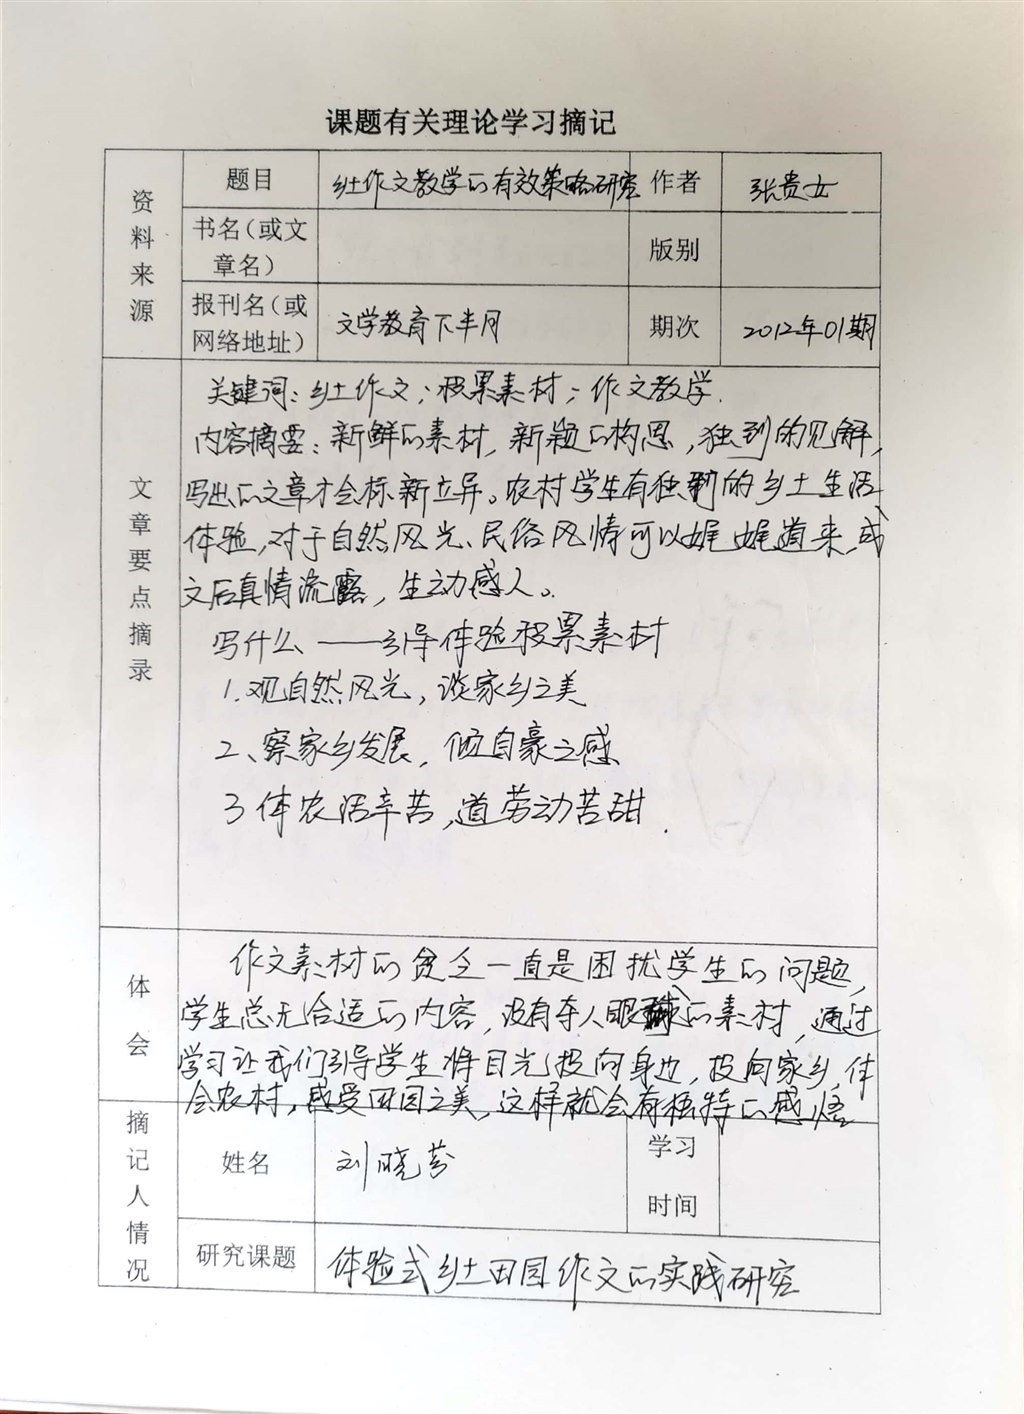 课题有关理论学习摘记
资料来源
题目
乡土作文教学的有效策略研究
作者
张贵女
书名(或文章名)
版别
报刊名(或网络地址)
文学教育下半月
期次
2012年01期
文章要点摘录
关键词：乡土作文；积累素材；作文教学.
内容摘要：新鲜的素材，新颖的构思，独到的见解，
写出的文章才会标新立异。农村学生有独到的乡土生活
体验，对于自然风光、民俗风情可以娓娓道来，成
文后真情流露，生动感人。
写什么——引导体验积累素材
1.观自然风光，谈家乡之美
2、察家乡发展，倾自豪之感
3 体农活辛苦，道劳动苦甜.
体会
作文素材的贫乏一直是困扰学生的问题，
学生总无合适的内容，没有夺人眼球的素材，通过
学习让我们引导学生将目光投向身边，投向家乡，体
会农村，感受田园之美，这样就会有独特的感悟
摘记人情况
姓名
刘晓芳
学习时间
研究课题
体验式乡土田园作文的实践研究